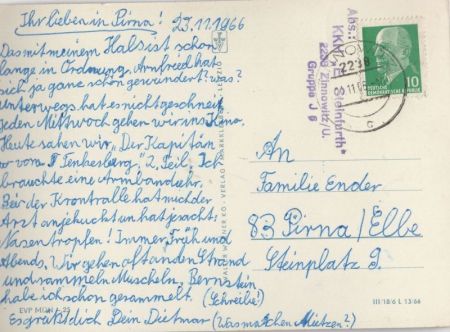 Ihr lieben in Pirna! 23.11.1966
Das mit meinem Hals ist schon
lange in Ordnung. Arnfried hat
sich ja ganz schön gesundert? was?
Unterwegs hat es nicht geschneit.
Jeden Mittwoch gehen wir ins Kino.
Heute sahen wir „Der Kapitän
vom Tenkesberg" 2. Teil. Ich
brauchte eine Armbanduhr.
Bei der Krontralle hat mich der
Arzt angekuckt un hat gesacht,
Nasentropfen! Immer, Früh und
Abends. Wir gehen oft an den Strand
und sammeln Muscheln. Bernstein
habe ich schon gesammelt. (Schreibe!)
Es grüßt dich Dein Dietmar (Was machen Mietzen?)
EVP MDN 0,25
Abs.:
KKH „E. Steinfurth"
2238 Zinnowitz/U.
Gruppe J 6
2238
c
10
DEUTSCHE
DEMOKRATISCHE REPUBLIK
An
Familie Ender
83 Pirna/Elbe
Steinplatz 2
III/18/6 L 13/66